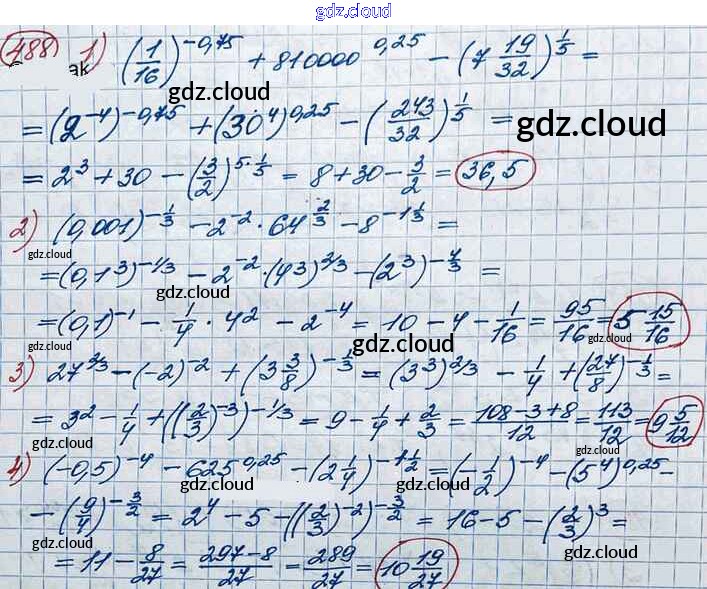 gdz.cloud
488 1) (1/16)^-0,75 + 810000^0,25 - (7 19/32)^1/5 =
эк
gdz.cloud
= (2^-4)^-0,75 + (30^4)^0,25 - (243/32)^1/5 =
gdz.cloud
= 2^3 + 30 - (3/2)^5·1/5 = 8 + 30 - 3/2 = 36,5
2) (0,001)^-1/3 - 2^-2 · 64^2/3 - 8^-1 1/3 =
gdz.cloud
= (0,1^3)^-1/3 - 2^-2 · (4^3)^2/3 - (2^3)^-4/3 =
gdz.cloud
gdz.cloud
= (0,1)^-1 - 1/4 · 4^2 - 2^-4 = 10 - 4 - 1/16 = 95/16 = 5 15/16
gdz.cloud
3) 27^2/3 - (-2)^-2 + (3 3/8)^-1/3 = (3^3)^2/3 - 1/4 + (27/8)^-1/3 =
= 3^2 - 1/4 + ((2/3)^-3)^-1/3 = 9 - 1/4 + 2/3 = (108 - 3 + 8)/12 = 113/12 = 9 5/12
gdz.cloud
gdz.cloud
4) (-0,5)^-4 - 625^0,25 - (2 1/4)^-1 1/2 = (-1/2)^-4 - (5^4)^0,25 -
gdz.cloud
gdz.cloud
- (9/4)^-3/2 = 2^4 - 5 - ((2/3)^-2)^-3/2 = 16 - 5 - (2/3)^3 =
gdz.cloud
gdz.cloud
= 11 - 8/27 = (297 - 8)/27 = 289/27 = 10 19/27
gdz.cloud